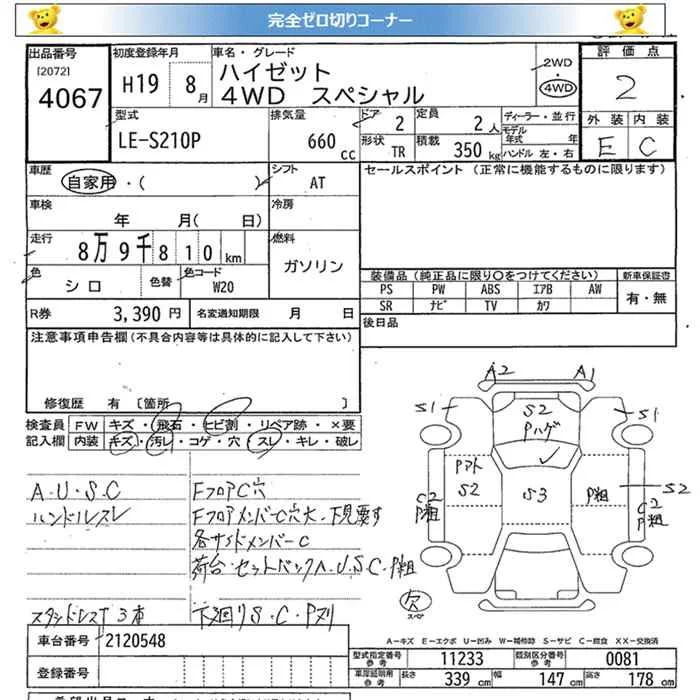 完全ゼロ切りコーナー
出品番号 初度登録年月 車名・グレード 評価点
[2072] 4067 H19 8月 ハイゼット 2WD・4WD 2
4WD スペシャル
型式 排気量 ドア 定員 ディーラー・並行 外装 内装
LE-S210P 660cc 2 2人 モデル年式 年 E C
形状 TR 積載 350kg ハンドル 左・右
車歴 自家用・( ) シフト AT セールスポイント (正常に機能するものに限ります)
車検 年 月( 日) 冷房
走行 8万9千810km 燃料 ガソリン
色 シロ 色替 色コード W20
装備品(純正品に限り○をつけてください) 新車保証書
PS PW ABS エアB AW 有・無
SR ナビ TV カワ
R券 3,390円 名変通知期限 月 日
後日品
注意事項申告欄(不具合内容等は具体的に記入して下さい)
修復歴 有 [箇所 ]
検査員 FW キズ・飛石・ヒビ割・リペア跡・×要
記入欄 内装 キズ・汚レ・コゲ・穴・スレ・キレ・破レ
A.U.S.C FフロアC穴
ハンドルスレ FフロアメンバーC穴大、下見要す
各サイドメンバーC
荷台・セットバックA.U.S.C.P粗
スタッドレスT3本 下廻りS.C.Pヌリ
A2 A1
S1 S2 Pハゲ S1
Pアト S2 S3 P粗 S2
C2 P粗 C2 P粗
欠 スペア
A-キズ E-エクボ U-凹み W-補修跡 S-サビ C-腐食 XX-交換済
車台番号 2120548
登録番号
型式指定番号 参考 11233 類別区分番号 参考 0081
車庫証明用 参考 長さ 339cm 幅 147cm 高さ 178cm